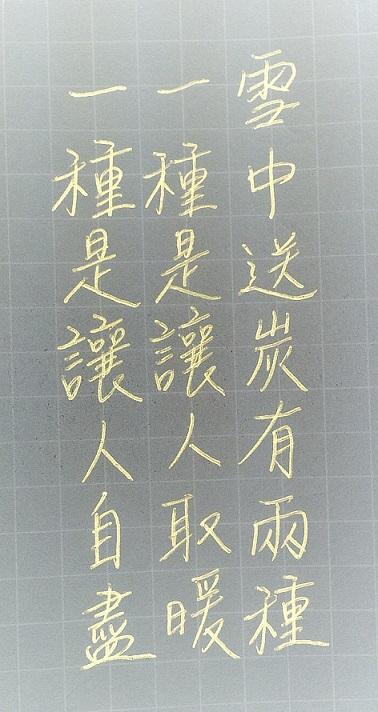 雪中送炭有兩種
一種是讓人取暖
一種是讓人自盡